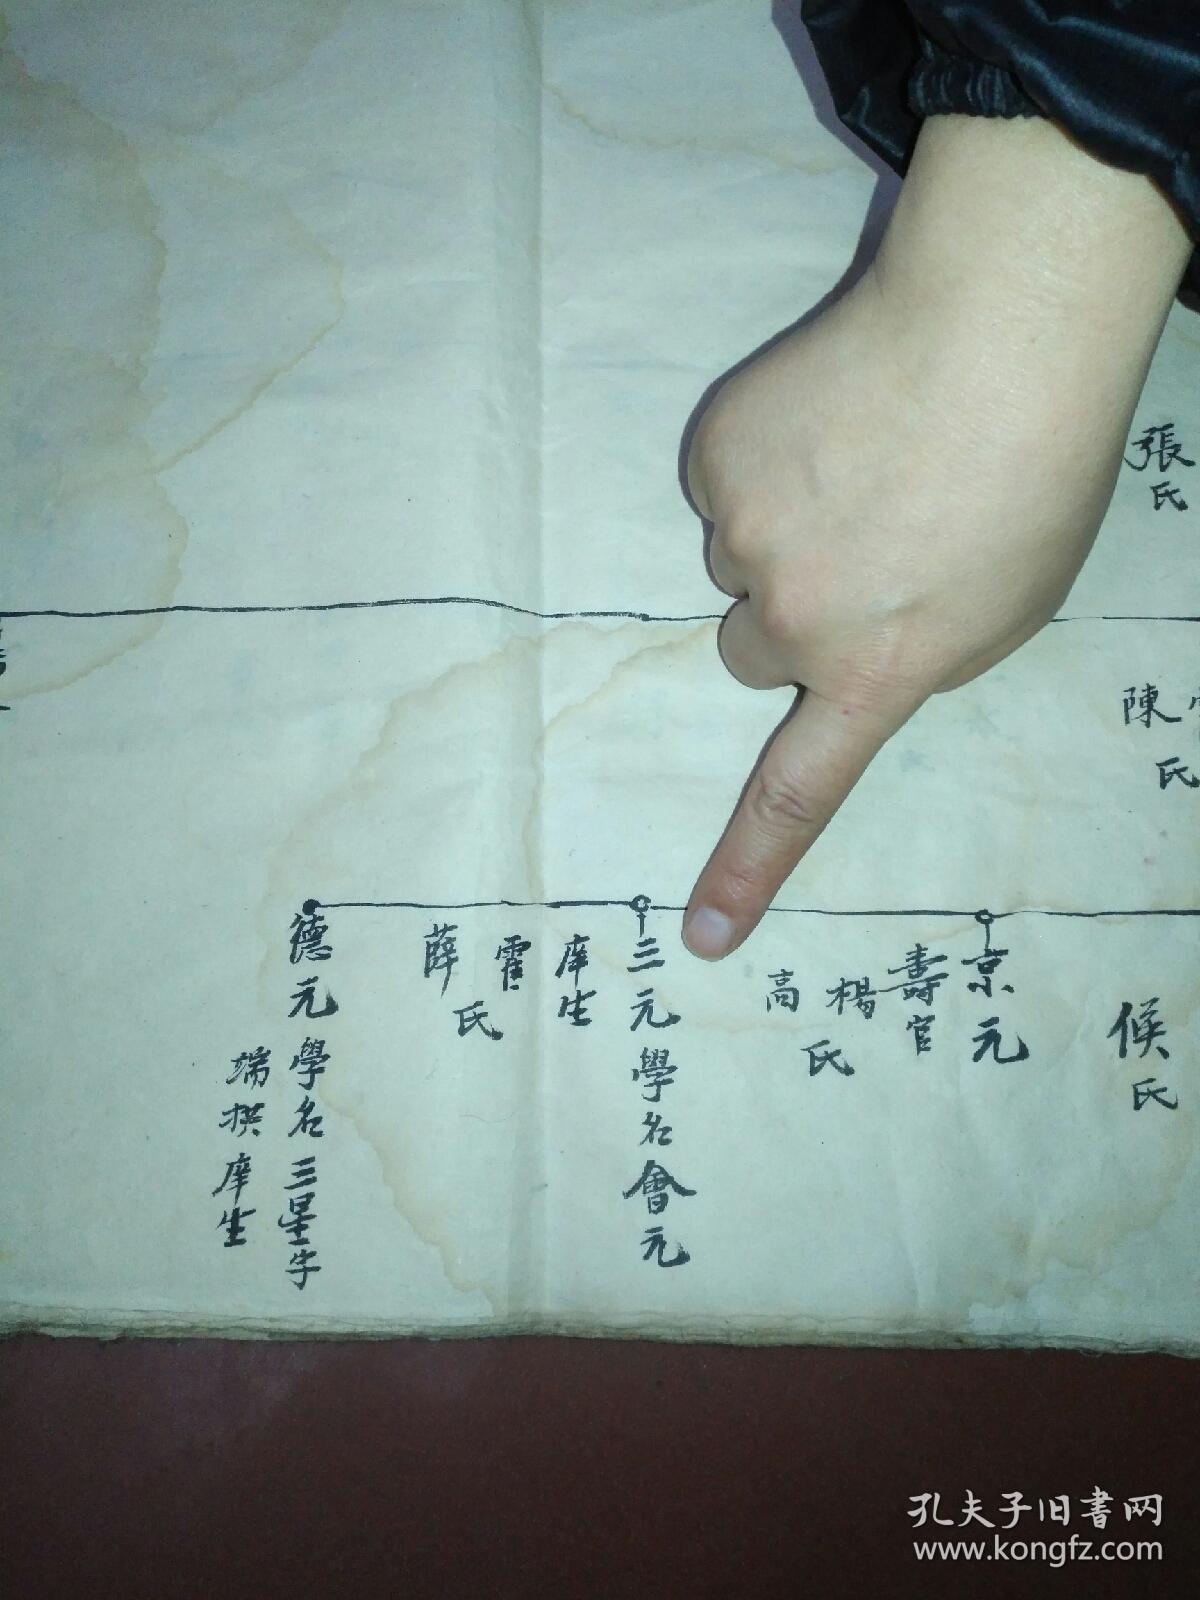 張氏
陳氏
候氏
京元
壽官
楊
高
氏
三元學名會元
庠生
霍
薛
氏
德元學名三星字
端拱庠生
孔夫子旧書网
www.kongfz.com